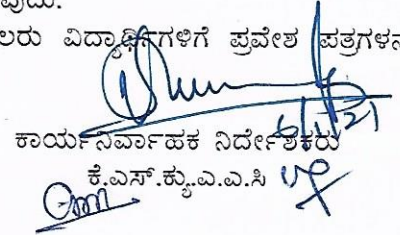 ವುದು.
ಲರು ವಿದ್ಯಾರ್ಥಿಗಳಿಗೆ ಪ್ರವೇಶ ಪತ್ರಗಳನ
ಕಾರ್ಯನಿರ್ವಾಹಕ ನಿರ್ದೇಶಕರು
ಕೆ.ಎಸ್.ಕ್ಯು.ಎ.ಎ.ಸಿ